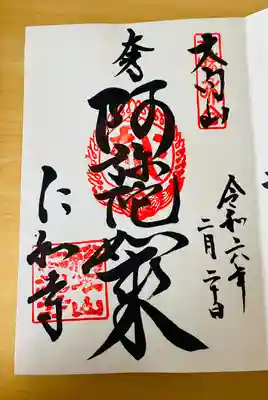 大内山
令和六年
二月二十日
奉
阿弥陀如来
仁和寺